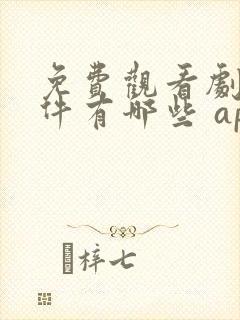 免費觀看劇
件有哪些 ap
梓七